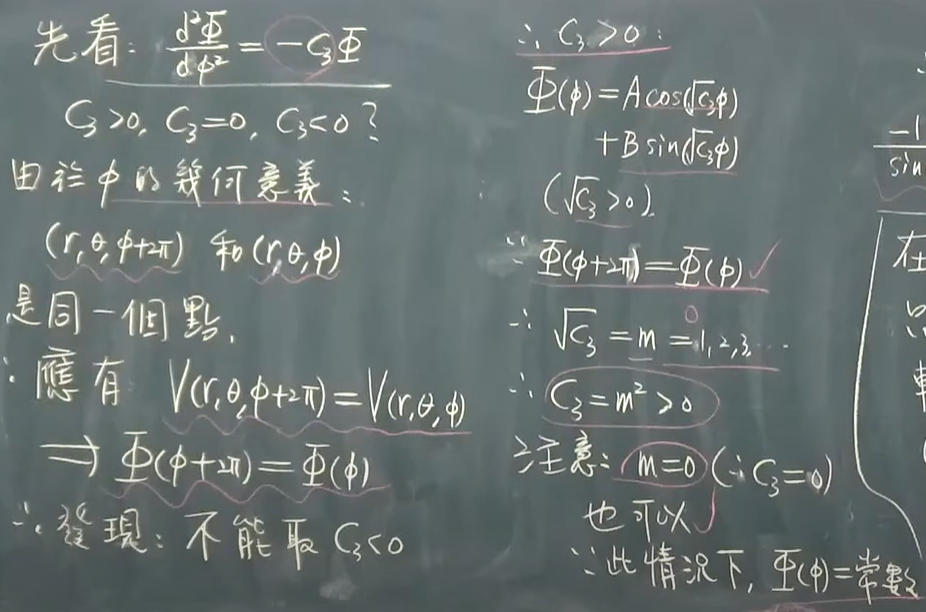 先看: d²Φ/dφ² = -C₃Φ
C₃>0, C₃=0, C₃<0?
由於φ的幾何意義:
(r,θ,φ+2π) 和 (r,θ,φ)
是同一個點,
∴ 應有 V(r,θ,φ+2π)=V(r,θ,φ)
⇒ Φ(φ+2π)=Φ(φ)
∴ 發現: 不能取 C₃<0
∴ C₃>0:
Φ(φ)=A cos(√C₃φ)
+B sin(√C₃φ)
(√C₃>0).
∵ Φ(φ+2π)=Φ(φ) ✓
0
∴ √C₃=m=1,2,3,...
∴ C₃=m²>0
注意: m=0 (∴ C₃=0)
也可以 ✓
∵此情況下, Φ(φ)=常數
-1
sin
在